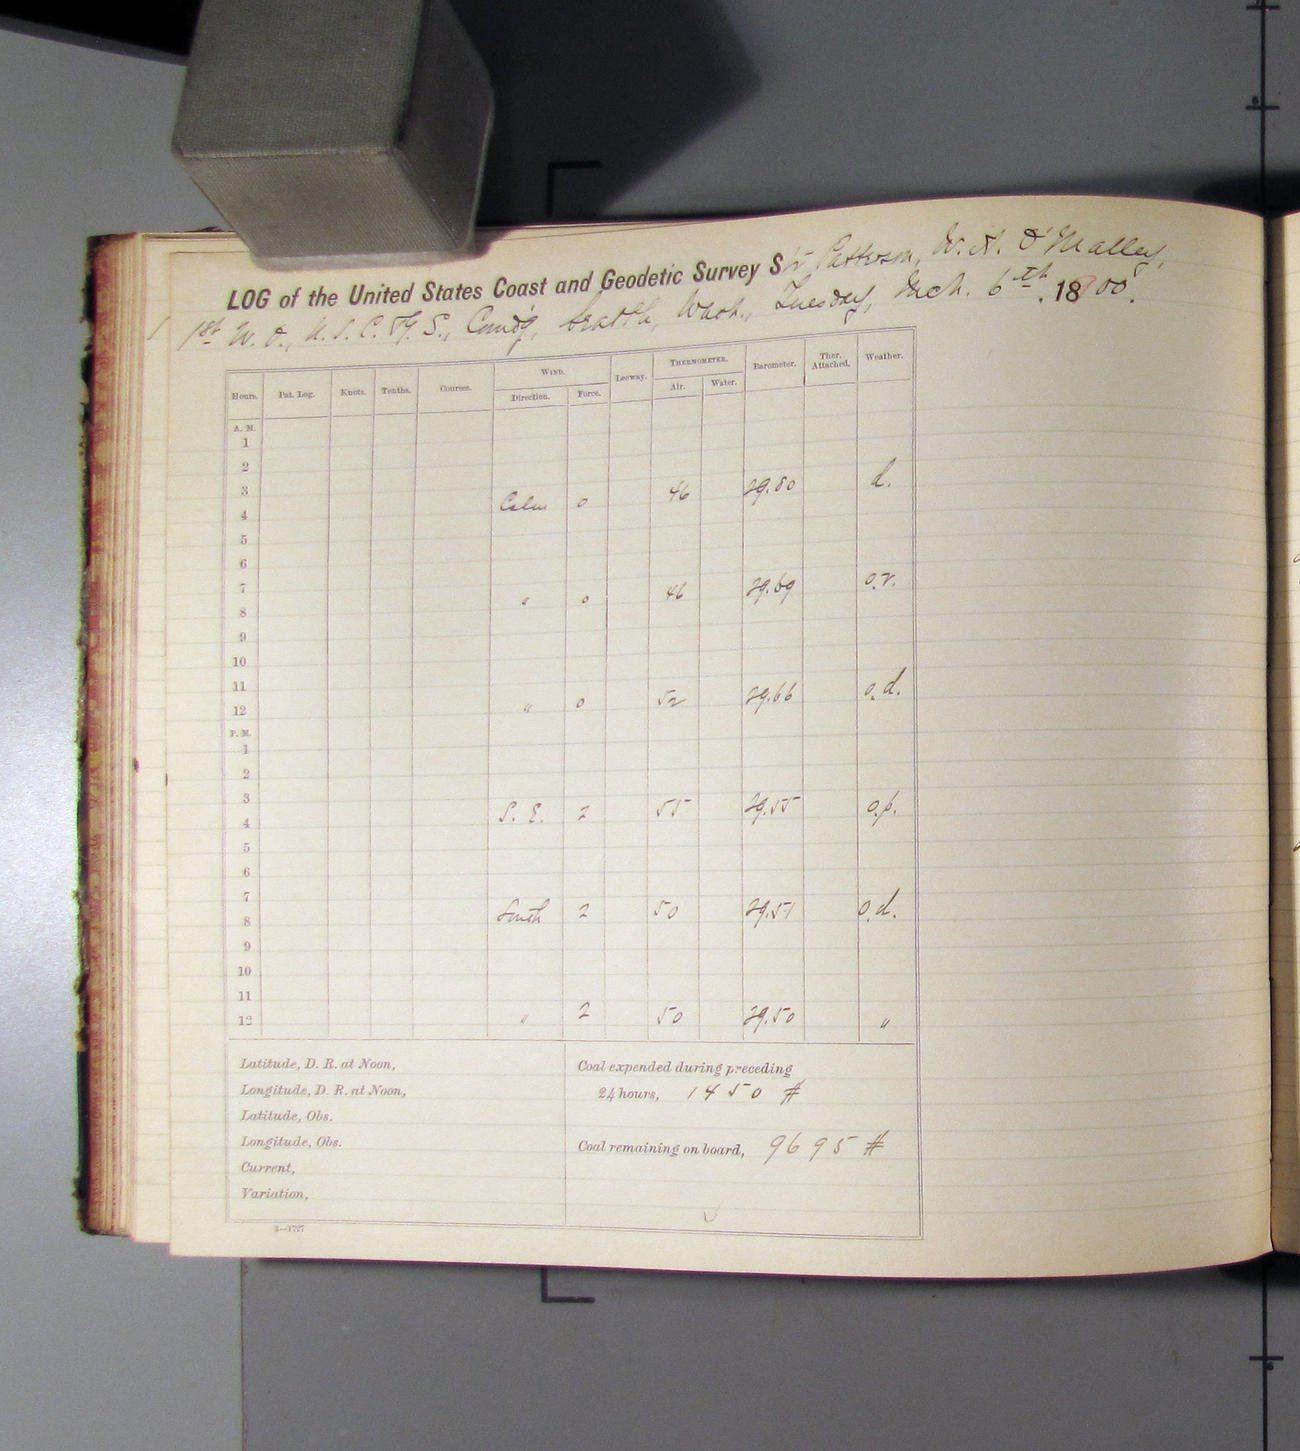 LOG of the United States Coast and Geodetic Survey Str Patterson, W. A. O'Malley,
1st W. O., U. S. C. & G. S., Comd'g, Seattle, Wash., Tuesday, Mch. 6th, 1800.
Hours. Pat. Log. Knots. Tenths. Courses. WIND. Leeway. THERMOMETER. Barometer. Ther. Attached. Weather.
Direction. Force. Air. Water.
A. M.
1
2
3 Calm 0 46 29.80 d.
4
5
6
7 " 0 46 29.69 o.r.
8
9
10
11 " 0 52 29.66 o.d.
12
P. M.
1
2
3 S. E. 2 55 29.55 o.p.
4
5
6
7 South 2 50 29.51 o.d.
8
9
10
11
12 " 2 50 29.50 "
Latitude, D. R. at Noon,
Longitude, D. R. at Noon,
Latitude, Obs.
Longitude, Obs.
Current,
Variation,
Coal expended during preceding
24 hours, 1450 #
Coal remaining on board, 9695 #